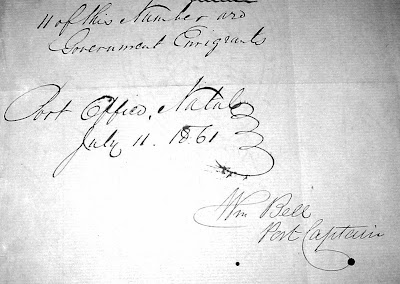 11 of this Number are
Government Emigrants
Port Office, Natal
July 11. 1861
Wm Bell
Port Captain